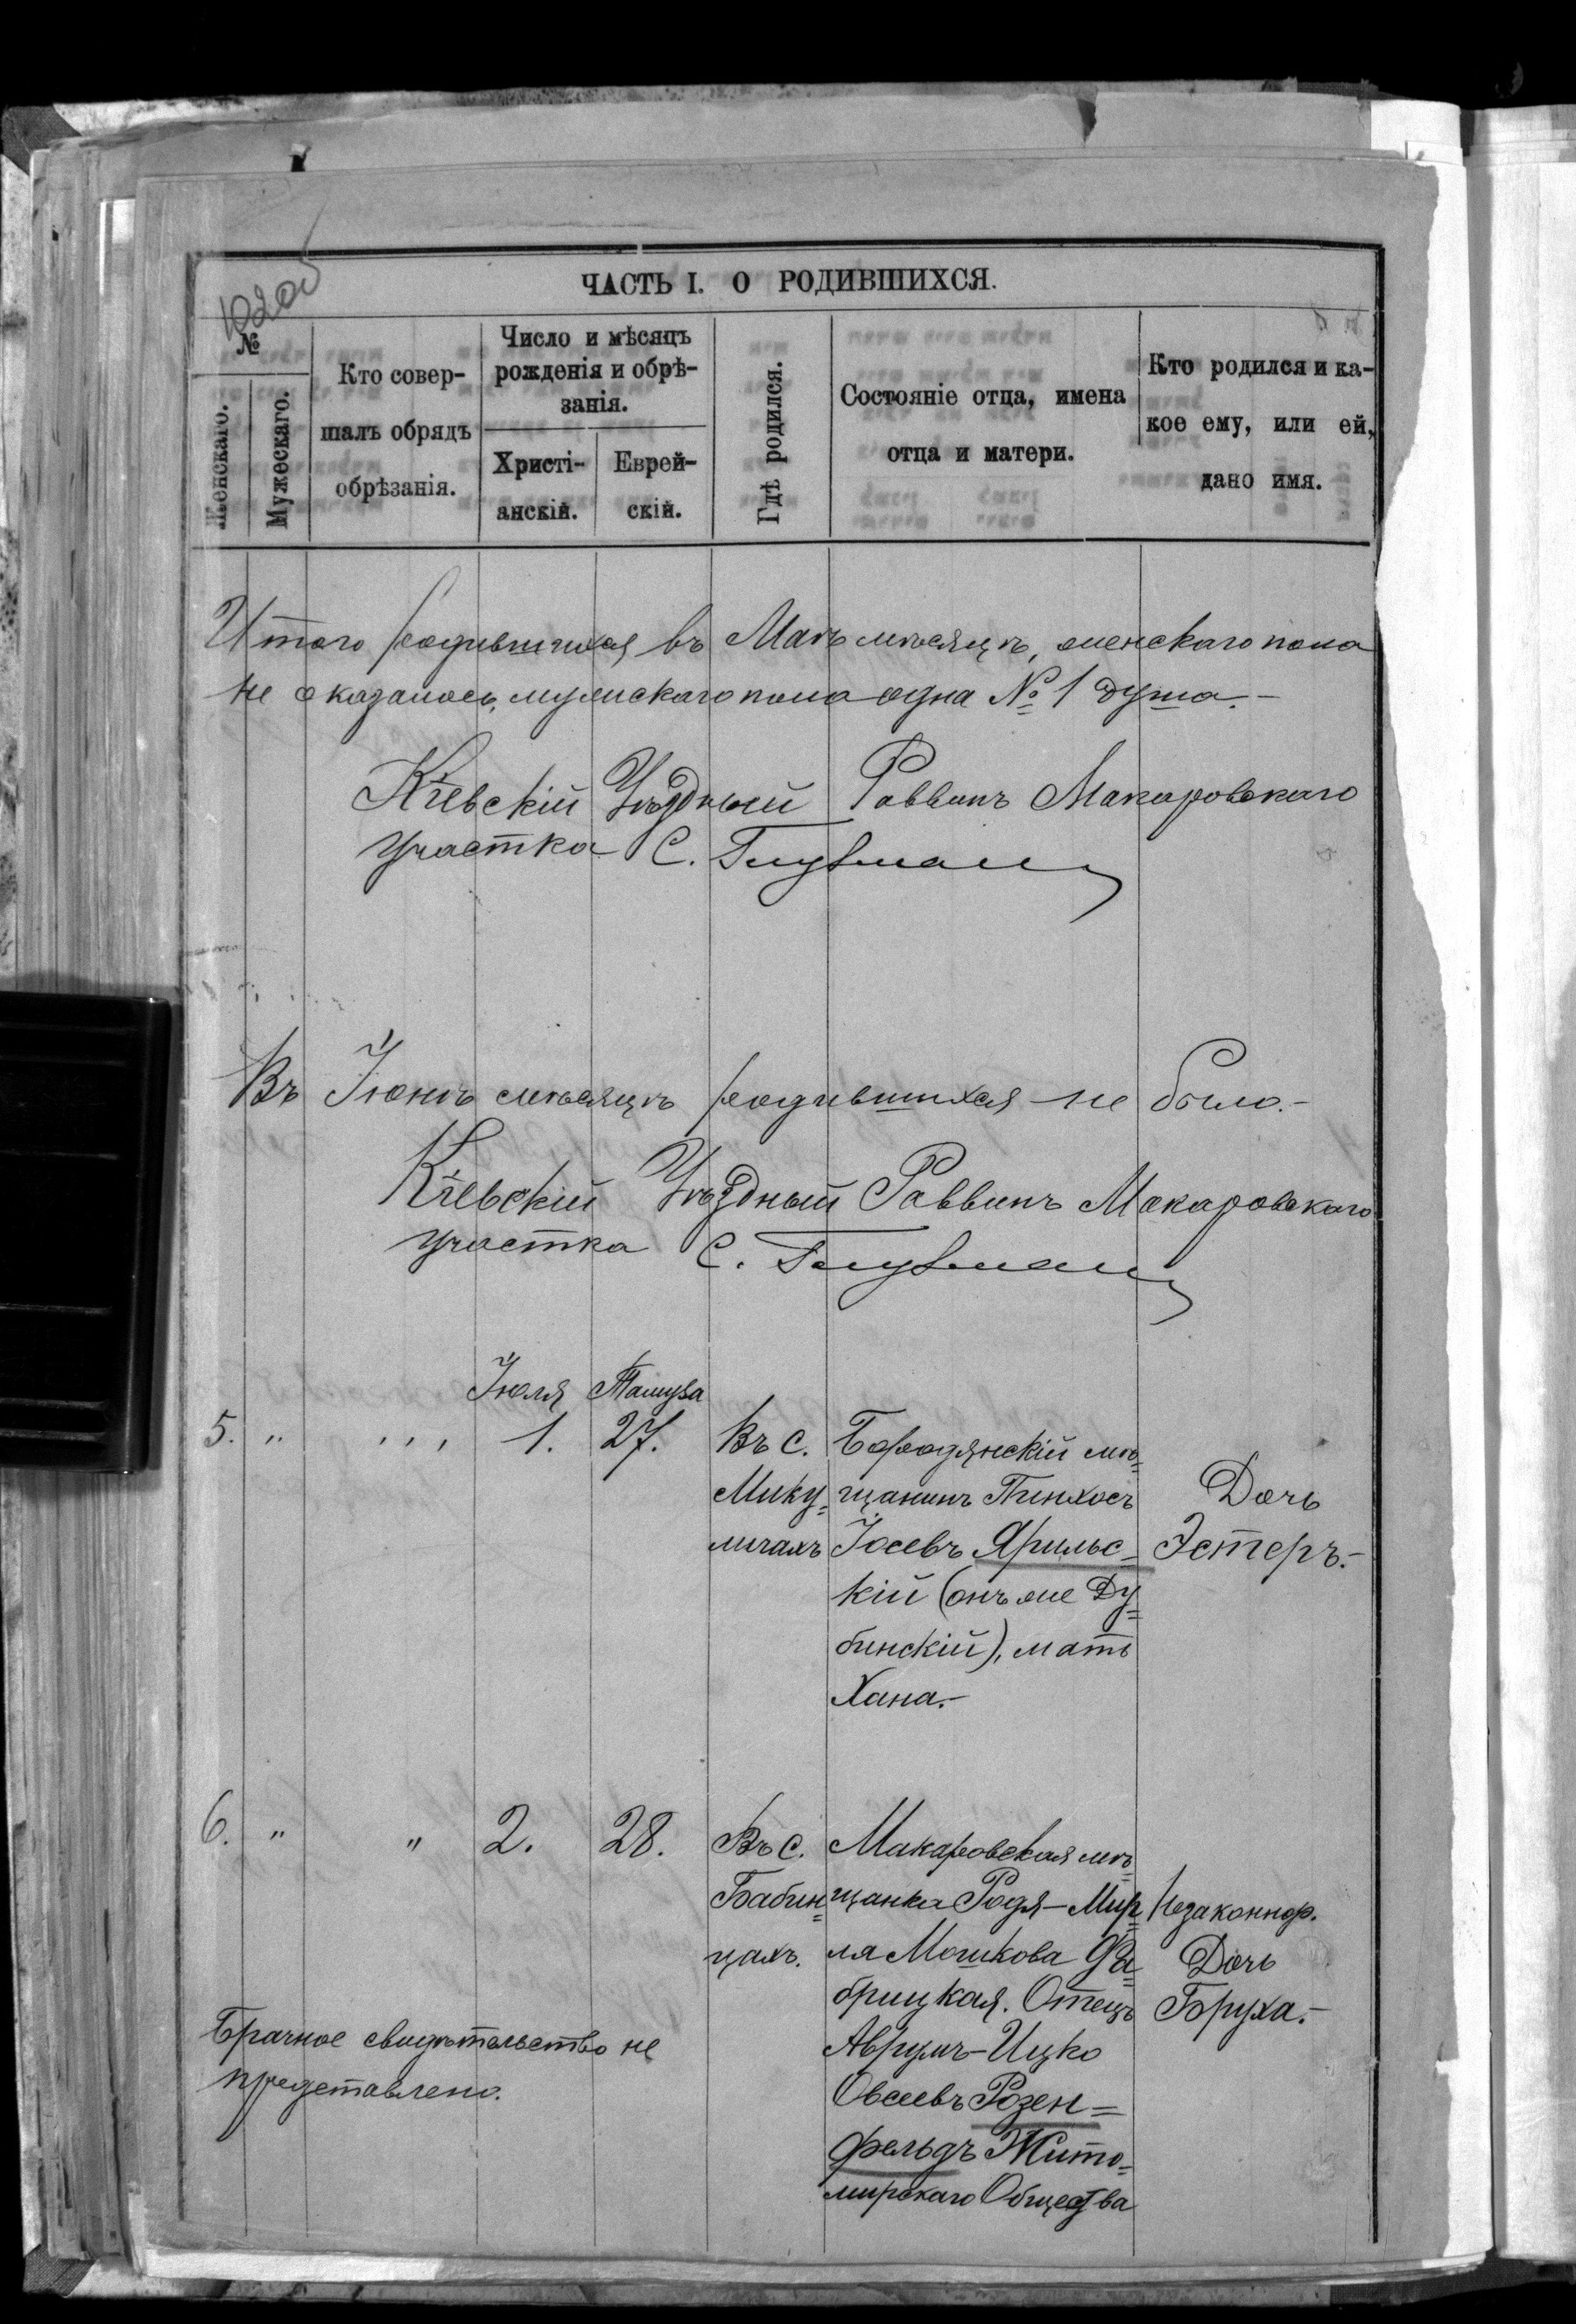 ЧАСТЬ I. О РОДИВШИХСЯ.
№
Женскаго.
Мужескаго.
Кто совер-
шалъ обрядъ
обрѣзанія.
Число и мѣсяцъ
рожденія и обрѣ-
занія.
Христі-
анскій.
Еврей-
скій.
Гдѣ родился.
Состояніе отца, имена
отца и матери.
Кто родился и ка-
кое ему, или ей,
дано имя.
Итого родившихся въ Маѣ мѣсяцѣ, женскаго пола
не оказалось, мужскаго пола одна № 1 душа.-
Кіевскій Уѣздный Раввинъ Макаровскаго
участка С.
Въ Іюнѣ мѣсяцѣ родившихся не было.-
Кіевскій Уѣздный Раввинъ Макаровскаго
участка С.
Іюля Тамуза
5. " " 1. 27.
Въ с.
Мику=
личахъ
Бородянскій мѣ=
щанинъ Пинхосъ
Іосевъ Ярильс-
кій (онъ же Ду=
бинскій), мать
Хана.-
Дочь
Эстеръ.-
6. " " 2. 28.
Въ с.
Бабин=
цахъ.
Макаровская мѣ=
щанка Родя-Мир=
ля Мошкова Фа=
брицкая. Отецъ
Аврумъ-Ицко
Овсеевъ Розен=
фельдъ Жито=
мирскаго Общества
Незаконнор.
Дочь
Бруха.-
Брачное свидѣтельство не
представлено.